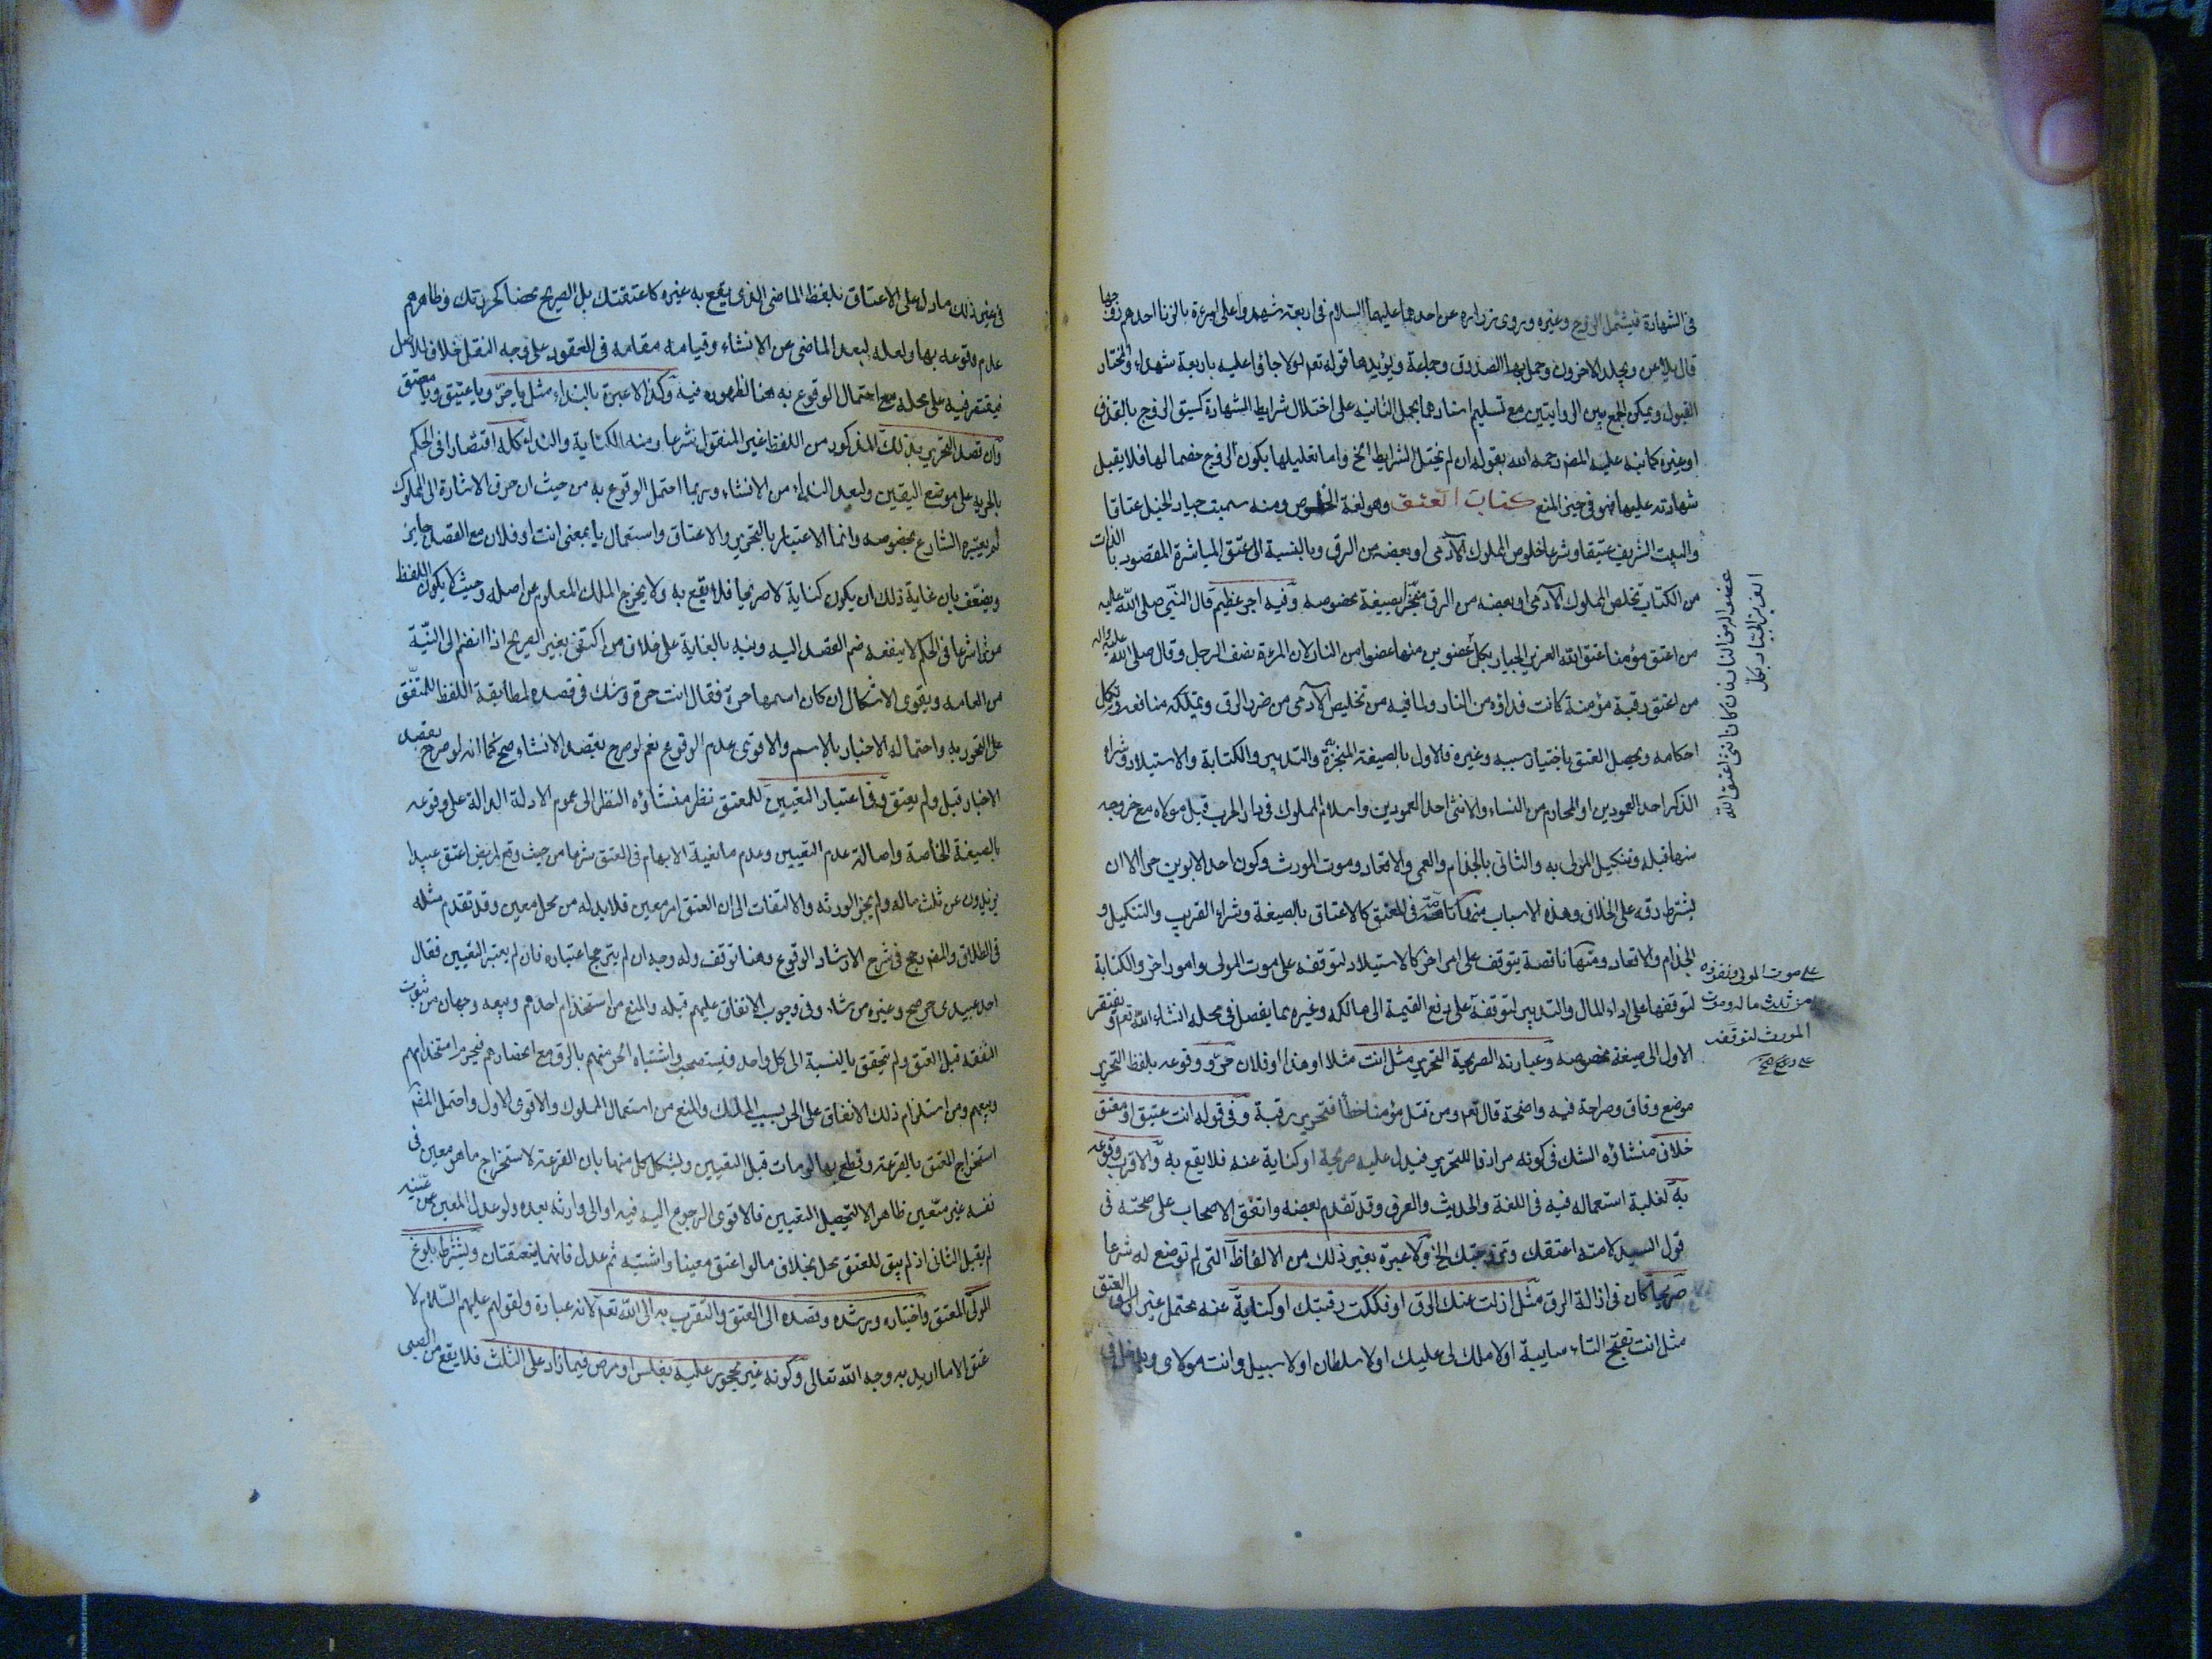 في الشهادة فيشمل الزوج وغيره وروى زرارة عن احدهما عليهما السلام في اربعة شهدوا على امرءة بالزنا احدهم زوجها
قال يلاعن ويجلد الاخرون وحمل بها الصدوق وجماعة ويؤيدها قوله تعم لولا جاؤا عليه باربعة شهداء والمختار
القبول ويمكن الجمع بين الروايتين مع تسليم اسنادهما بحمل الثانية على اختلال شرايط الشهادة كسبق الزوج بالقذف
او غيره كما نبه عليه المصنف رحمه الله بقوله ان لم يختل الشرايط الخ واما تعليلها بكون الزوج خصما لها فلا يقبل
شهادته عليها فهو في حيز المنع كتاب العتق وهو لغة الخلوص ومنه سميت جياد الخيل عتاقا
والبيت الشريف عتيقا وشرعا خلوص المملوك الآدمي او بعضه من الرق وبالنسبة الى عتق المباشرة المقصود بالذات
من الكتاب تخلص المملوك الآدمي او بعضه من الرق منجزا بصيغة مخصوصه وفيه اجر عظيم قال النبي صلى الله عليه
من اعتق مؤمنا اعتق الله العزيز الجبار بكل عضوين منها عضوا من النار لان المرءة نصف الرجل وقال صلى الله عليه واله
من اعتق رقبة مؤمنة كانت فداؤه من النار ولما فيه من تخليص الآدمي من ضرر الرق وتملكه منافعه وتكمل
احكامه ويحصل العتق باختيار سببه وغيره فالاول بالصيغة المنجزة والتدبير والكتابة والاستيلاد وشراء
الذكر احد العمودين او المحارم من النساء والانثى احد العمودين واسلام المملوك في دار الحرب قبل مولاه مع خروجه
منها قبله وتنكيل المولى به والثاني بالجذام والعمى والاقعاد وموت المورث وكون احد الابوين حرا الا ان
يشترط رقه على الخلاف وهذه الاسباب منها تامة في العتق كالاعتاق بالصيغة وشراء القريب والتنكيل و
الجذام والاقعاد ومنها ناقصة يتوقف على امر اخر كالاستيلاد لتوقفه على موت المولى وامور اخر والكتابة
لتوقفها على اداء المال والتدبير لتوقفه على دفع القيمة الى مالكه وغيره مما يفصل في محله انشاء الله تعم ويفتقر
الاول الى صيغة مخصوصه وعبارته الصريحية التحرير مثل انت مثلا او هذا او فلان حر ووقوعه بلفظ التحرير
موضع وفاق وصراحة فيه واضحة قال تعم ومن قتل مؤمنا خطأ فتحرير رقبة وفي قوله انت عتيق او معتق
خلاف منشاؤه الشك في كونه مرادفا للتحرير فيدل عليه صريحية او كناية عنه فلا يقع به والاقرب وقوعه
به لغلبة استعماله فيه في اللغة والحديث والعرف وقد تقدم بعضه واتفق الاصحاب على صحته في
قول السيد لامته اعتقك وتزوجتك الخ ولا عبرة بغير ذلك من الالفاظ التي لم توضع له شرعا
صريحا كان في ازالة الرق مثل ازلت عنك الرق او فككت رقبتك او كناية عنه محتمل غير العتق
مثل انت بفتح التاء سايبة او لا ملك لي عليك او لا سلطان او لا سبيل او انت مولاي ويدخل في
عضوا له من النار فان كان انثى اعتق الله
العزيز الجبار بكل
على موت المولى ونفوذه
من ثلث ماله وموت
المورث لتوقفه
في غير ذلك ما دل على الاعتاق بلفظ الماضي الذي يقع به غيره كاعتقتك بل الصريح محضا كحررتك وظاهرهم
عدم وقوعه بها ولعله لبعد الماضي عن الانشاء وقيامه مقامه في العقود على وجه النقل خلاف الاصل
فيقتصر فيه على محله مع احتمال الوقوع به هنا لظهوره فيه وكذا لا عبرة بالنداء مثل يا حر ويا عتيق ويا معتق
وان قصد التحرير بذلك المذكور من اللفظ غير المنقول شرعا ومنه الكناية والنداء كله اقتصارا في الحكم
بالحرية على موضع اليقين ولبعد النداء من الانشاء وربما احتمل الوقوع به من حيث ان حرف الاشارة الى المملوك
لم يعتبره الشارع بخصوصه وانما الاعتبار بالتحرير والاعتاق واستعمال يا بمعنى انت او فلان مع القصد جايز
ويضعف بان غاية ذلك ان يكون كناية لا صريحا فلا يقع به ولا يخرج الملك المعلوم عن اصله وحيث لا يكون اللفظ
موثرا شرعا في الحكم لا ينفعه ضم القصد اليه ونبه بالغاية على خلاف من اكتفى بغير الصريح اذا انضم الى النية
من العامه ويقوى الاشكال ان كان اسمها حرة فقال انت حرة وشك في قصده لمطابقة اللفظ للمتفق
على التحرر به واحتماله الاخبار بالاسم والاقوى عدم الوقوع نعم لو صرح بقصد الانشاء صح كما انه لو صرح بقصد
الاخبار قبل ولم يعتق وفي اعتبار التعيين للمعتق نظر منشاؤه النظر الى عموم الادلة الدالة على وقوعه
بالصيغة الخاصة واصالة عدم التعيين وعدم مانعية الابهام في العتق شرعا من حيث وقع لمريض اعتق عبيدا
يزيدون عن ثلث ماله ولم يجز الورثه والالتفات الى ان العتق امر معين فلا بد له من محل معين وقد تقدم مثله
في الطلاق والمصنف رجح في شرح الارشاد الوقوع وهنا توقف وله وجه ان لم يترجح اعتباره فان لم يعتبر التعيين فقال
احد عبيدي حر صح وعينه من شاء وفي وجوب الانفاق عليهم قبله والمنع من استخدام احدهم وبيعه وجهان من ثبوت
النفقه قبل العتق ولم يتحقق بالنسبة الى كل واحد فيستصحب واشتباه الحر منهم بالرق مع انحصارهم فيحرم استخدامهم
وبيعهم ومن استلزام ذلك الانفاق على الحر بسبب الملك والمنع من استعمال المملوك والاقوى الاول واحتمل المصنف
استخراج المعتق بالقرعة وقطع بها لو مات قبل التعيين ويشكل كل منهما بان القرعة لاستخراج ما هو معين في
نفسه غير متعين ظاهرا لا لتحصيل التعيين فالاقوى الرجوع اليه فيه او الى وارثه بعده ولو عدل المعين عمن عينه
لم يقبل الثاني اذ لم يبق للعتق محل بخلاف ما لو اعتق معينا واشتبه ثم عدل فانهما ينعتقان ويشترط بلوغ
المولى المعتق واختياره ورشده وقصده الى العتق والتقرب به الى الله تعم لانه عبادة ولقولهم عليهم السلام لا
عتق الا ما اريد به وجه الله تعالى وكونه غير محجور عليه بفلس او مرض فيما زاد على الثلث فلا يقع من الصبي